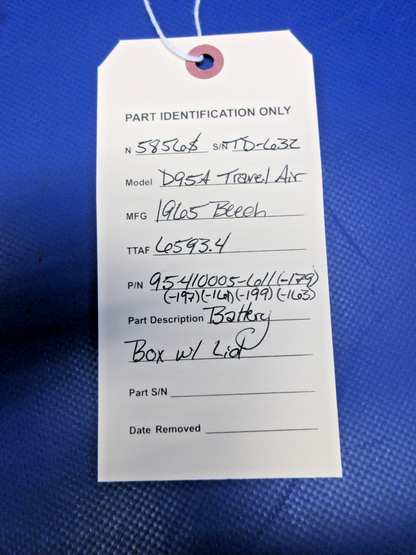 PART IDENTIFICATION ONLY
N 5856S S/N TD-632
Model D95A Travel Air
MFG 1965 Beech
TTAF 6593.4
P/N 95-410005-611 (-179)
(-197) (-161) (-199) (-163)
Part Description Battery
Box w/ Lid
Part S/N
Date Removed